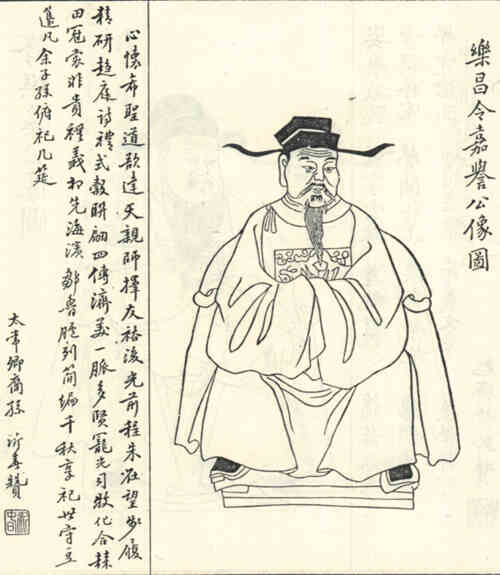 樂昌令嘉譽公像圖
心懷希聖道達天親師擇友裕後光前程朱在望步履
精研趨庭詩禮式穀聯翩四傳濟美一脈多賢寵光司牧化合
田冠裳非貴禮義相先海濱鄒魯臚列簡編千秋享祀世守豆
籩凡余子孫俯祀几筵
太常卿裔孫 贊